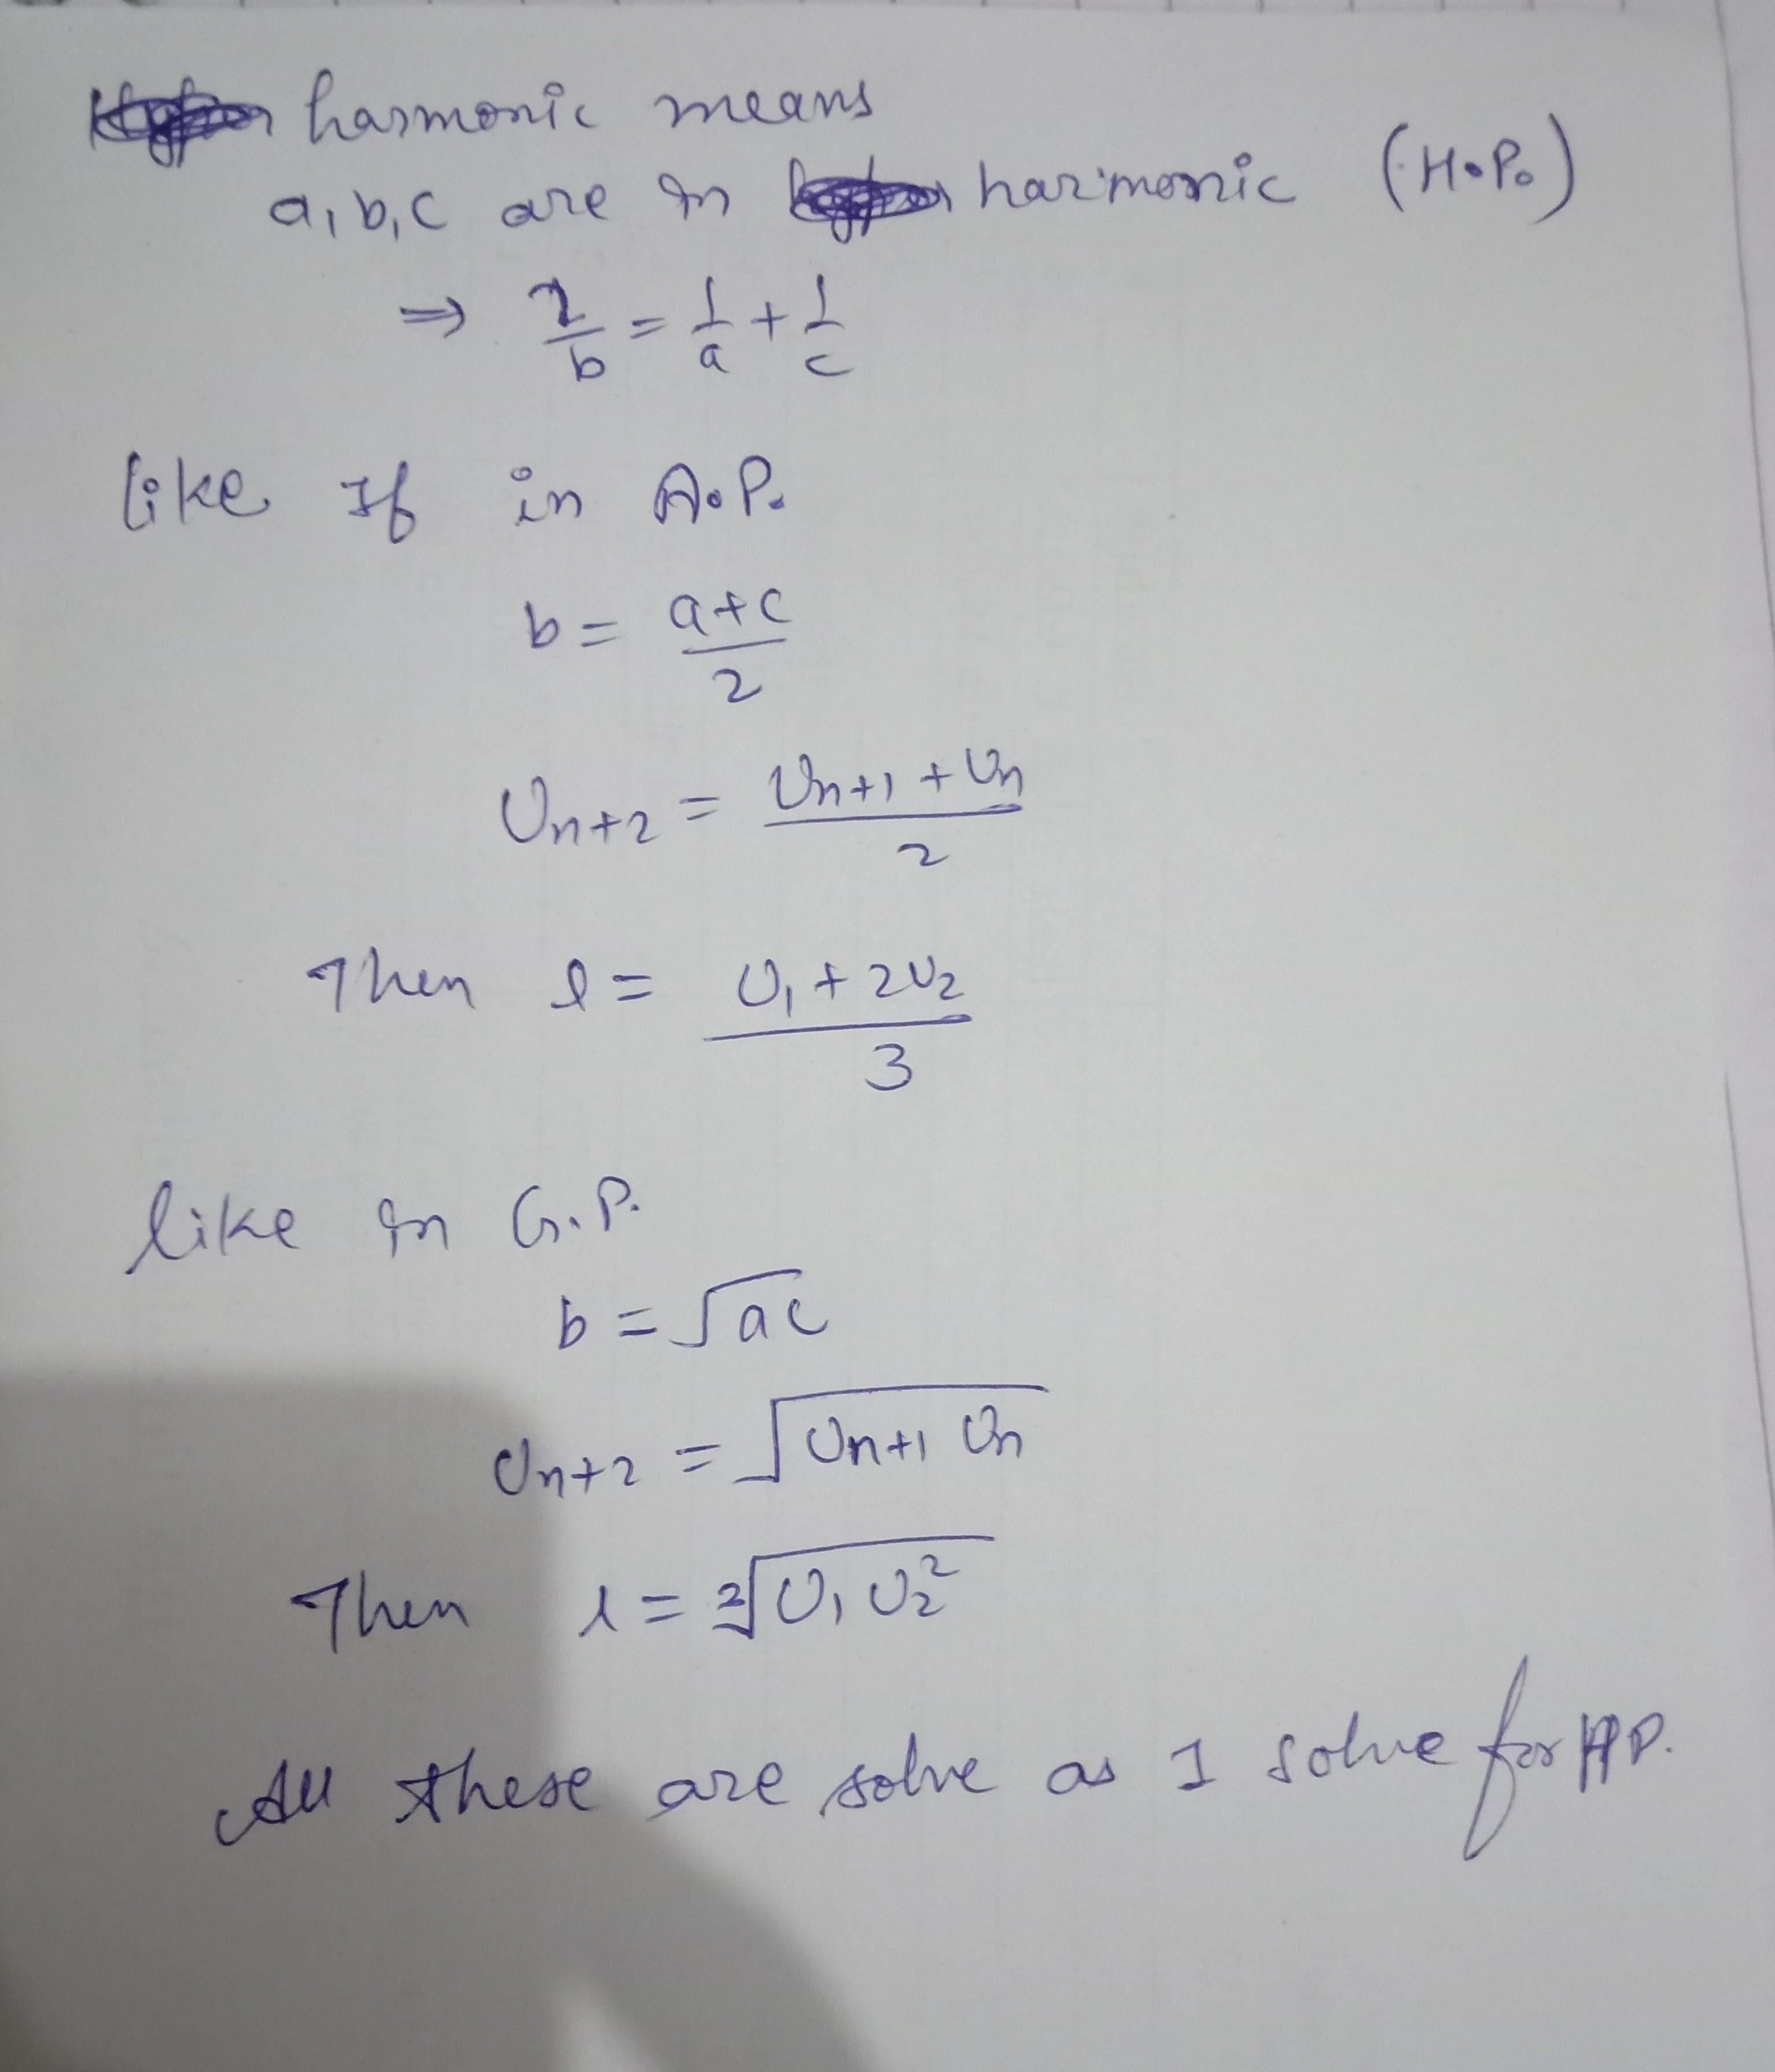 harmonic means
a, b, c are in harmonic (H.P.)
⇒ 2/b = 1/a + 1/c
like If in A.P.
b = (a+c)/2
Un+2 = (Un+1 + Un)/2
Then l = (U1 + 2U2)/3
like in G.P.
b = √ac
Un+2 = √(Un+1 Un)
Then l = ∛(U1 U2²)
All these are solve as I solve for HP.